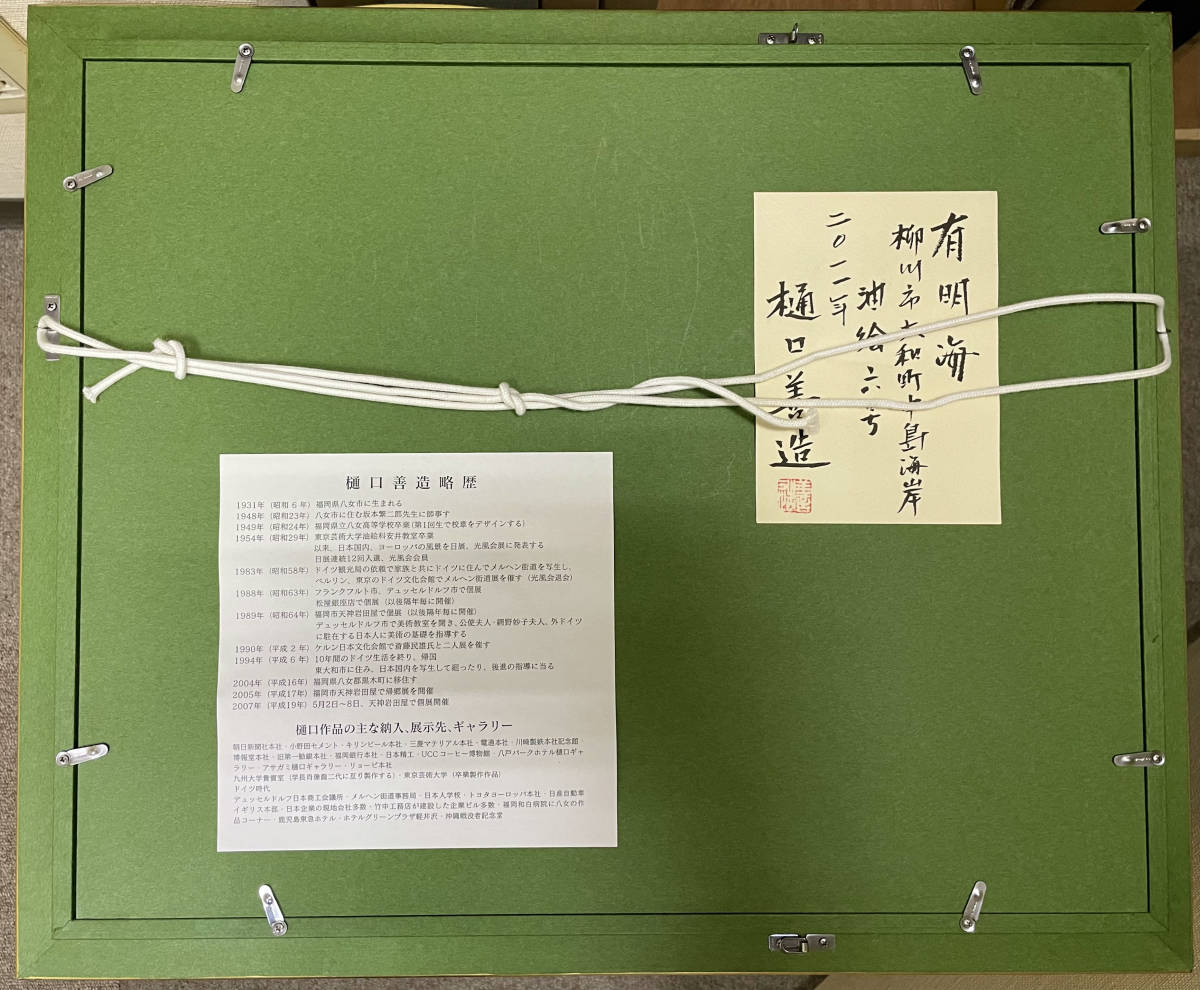 有明海
柳川市大和町中島海岸
油絵六号
二〇一一年
樋口善造
樋口善造略歴
1931年（昭和 6 年）福岡県八女市に生まれる
1948年（昭和23年）八女市に住む坂本繁二郎先生に師事す
1949年（昭和24年）福岡県立八女高等学校卒業（第1回生で校章をデザインする）
1954年（昭和29年）東京芸術大学油絵科安井教室卒業
以来、日本国内、ヨーロッパの風景を日展、光風会展に発表する
日展連続12回入選、光風会会員
1983年（昭和58年）ドイツ観光局の依頼で家族と共にドイツに住んでメルヘン街道を写生し、
ベルリン、東京のドイツ文化会館でメルヘン街道展を催す（光風会退会）
1988年（昭和63年）フランクフルト市、デュッセルドルフ市で個展
松屋銀座店で個展（以後隔年毎に開催）
1989年（昭和64年）福岡市天神岩田屋で個展（以後隔年毎に開催）
デュッセルドルフ市で美術教室を開き、公使夫人・網野妙子夫人、外ドイツ
に駐在する日本人に美術の基礎を指導する
1990年（平成 2 年）ケルン日本文化会館で斎藤民雄氏と二人展を催す
1994年（平成 6 年）10年間のドイツ生活を終り、帰国
東大和市に住み、日本国内を写生して廻ったり、後進の指導に当る
2004年（平成16年）福岡県八女郡黒木町に移住す
2005年（平成17年）福岡市天神岩田屋で帰郷展を開催
2007年（平成19年）5月2日〜8日、天神岩田屋で個展開催
樋口作品の主な納入、展示先、ギャラリー
朝日新聞社本社・小野田セメント・キリンビール本社・三菱マテリアル本社・電通本社・川崎製鉄本社記念館・
博報堂本社・旧第一勧銀本社・福岡銀行本社・日本精工・UCCコーヒー博物館・八戸パークホテル樋口ギャ
ラリー・アサガミ樋口ギャラリー・リョービ本社
九州大学貴賓室（学長肖像画二代に亙り製作する）・東京芸術大学（卒業製作作品）
ドイツ時代
デュッセルドルフ日本商工会議所・メルヘン街道事務局・日本人学校・トヨタヨーロッパ本社・日産自動車
イギリス本部・日本企業の現地会社多数・竹中工務店が建設した企業ビル多数・福岡和白病院に八女の作
品コーナー・鹿児島東急ホテル・ホテルグリーンプラザ軽井沢・沖縄戦没者記念堂